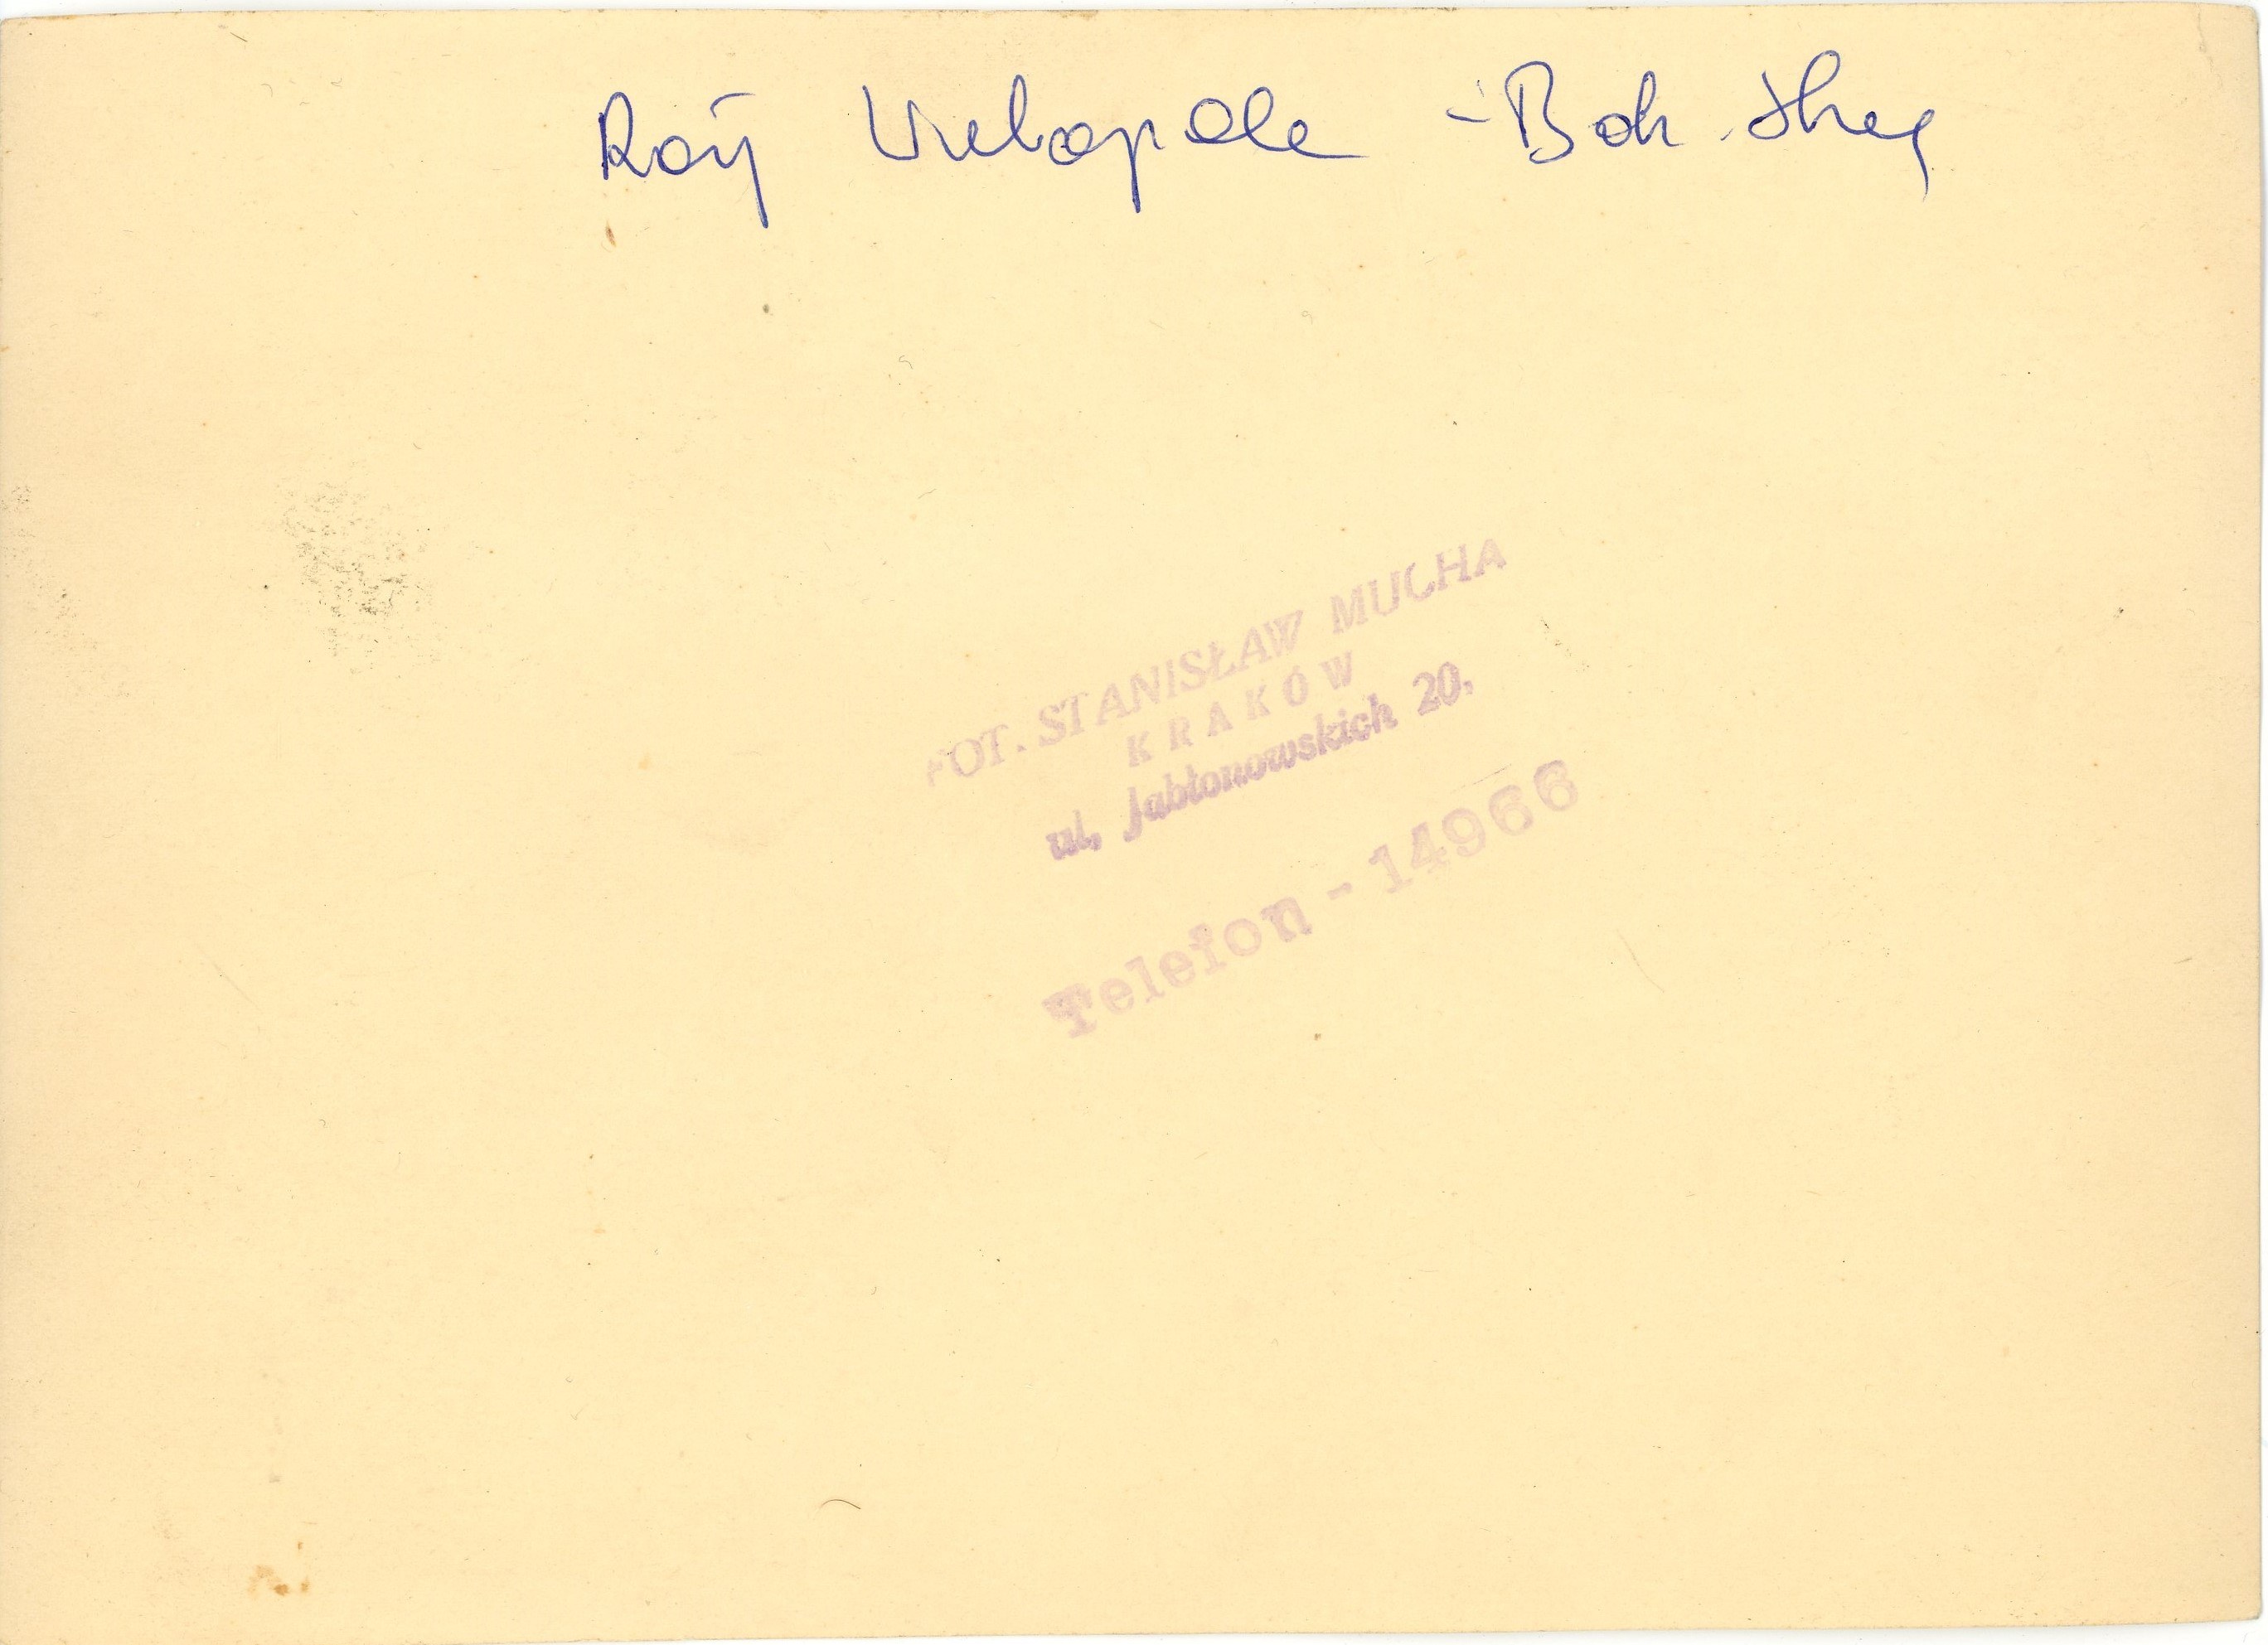 Róg Wielopole - Boh. Stal.
FOT. STANISŁAW MUCHA
KRAKÓW
ul. Jabłonowskich 20.
Telefon - 14966